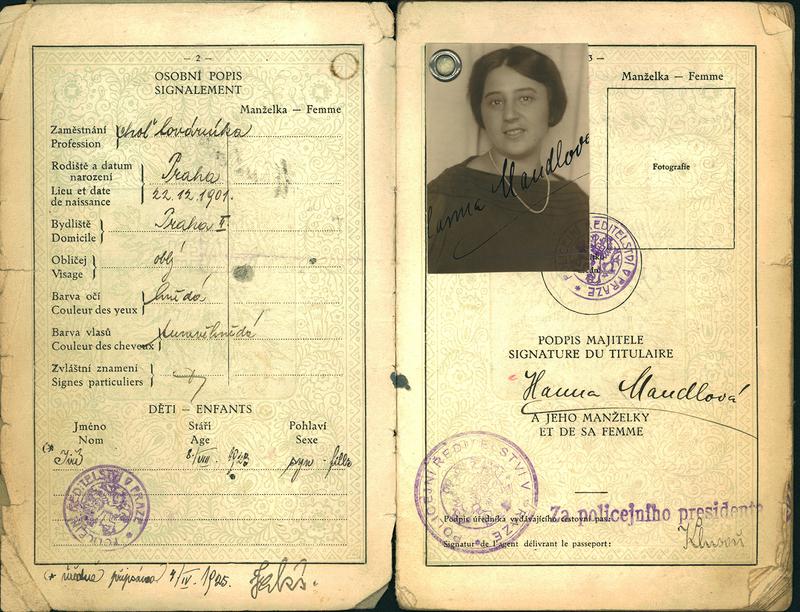 — 2 —
OSOBNÍ POPIS
SIGNALEMENT
Manželka — Femme
Zaměstnání
Profession
choť továrníka
Rodiště a datum
narození
Lieu et date
de naissance
Praha
22.12.1901.
Bydliště
Domicile
Praha II.
Obličej
Visage
oblý
Barva očí
Couleur des yeux
hnědá
Barva vlasů
Couleur des cheveux
tmavěhnědá
Zvláštní znamení
Signes particuliers
DĚTI – ENFANTS
Jméno
Nom
Stáří
Age
Pohlaví
Sexe
Jiří
POLICEJNÍ ŘEDITELSTVÍ V PRAZE
4/IV. 1925.
3 —
Manželka — Femme
Fotografie
Hanna Mandlová
ŘEDITELSTVÍ V PRAZE
PODPIS MAJITELE
SIGNATURE DU TITULAIRE
Hanna Mandlová
A JEHO MANŽELKY
ET DE SA FEMME
POLICEJNÍ ŘEDITELSTVÍ V PRAZE
Za policejního presidenta
Podpis úředníka vydávajícího cestovní pas:
Signatur de l'agent délivrant le passeport: